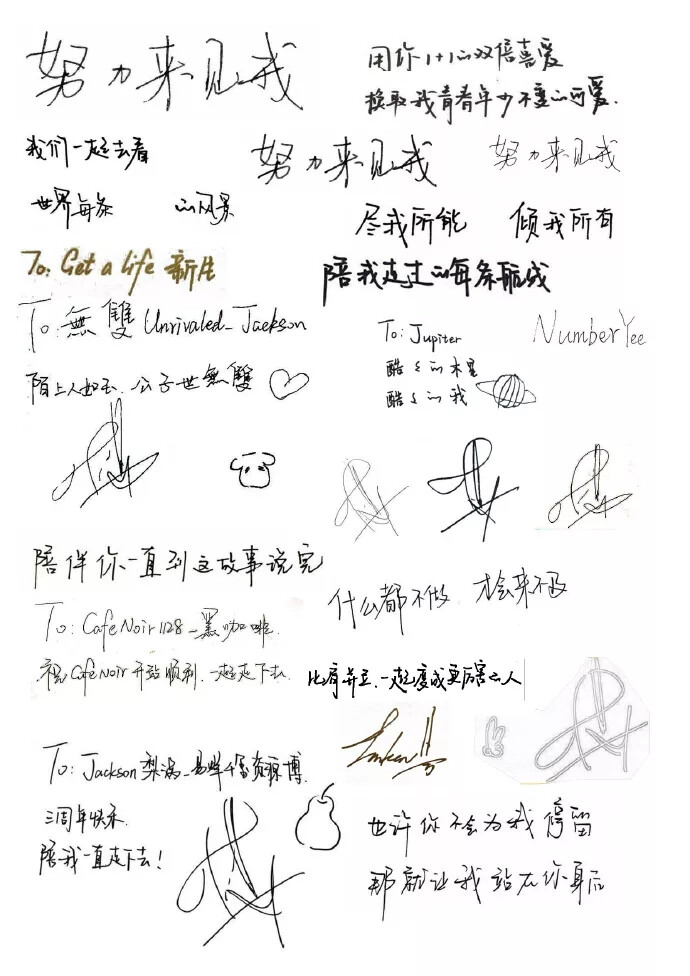 努力来见我
用你1+1的双倍喜爱
换取我青春年少不变的可爱.
我们一起去看
努力来见我
努力来见我
世界每条 的风景
尽我所能 倾我所有
To: Get a life 新生
陪我走过的每条航线
To: 無雙 Unrivaled_Jackson
陌上人如玉.公子世無雙
To: Jupiter
酷々的木星
酷々的我
NumberYee
陪伴你一直到这故事说完
什么都不做.才会来不及
To: CafeNoir1128_黑咖啡.
祝CafeNoir开站顺利.一起走下去.
比肩并立.一起变成更厉害的人
To: Jackson梨涡_易烊千玺资源博.
三周年快乐.
陪我一直走下去!
也许你不会为我停留
那就让我站在你身后